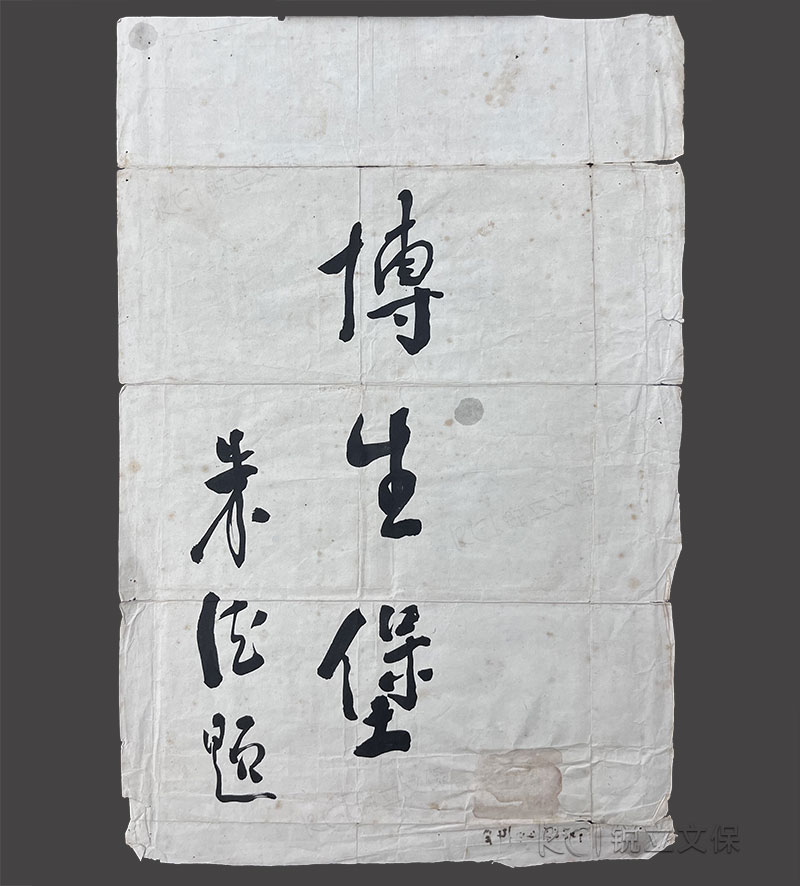 博生堡
朱德题
KCI 锐立文保